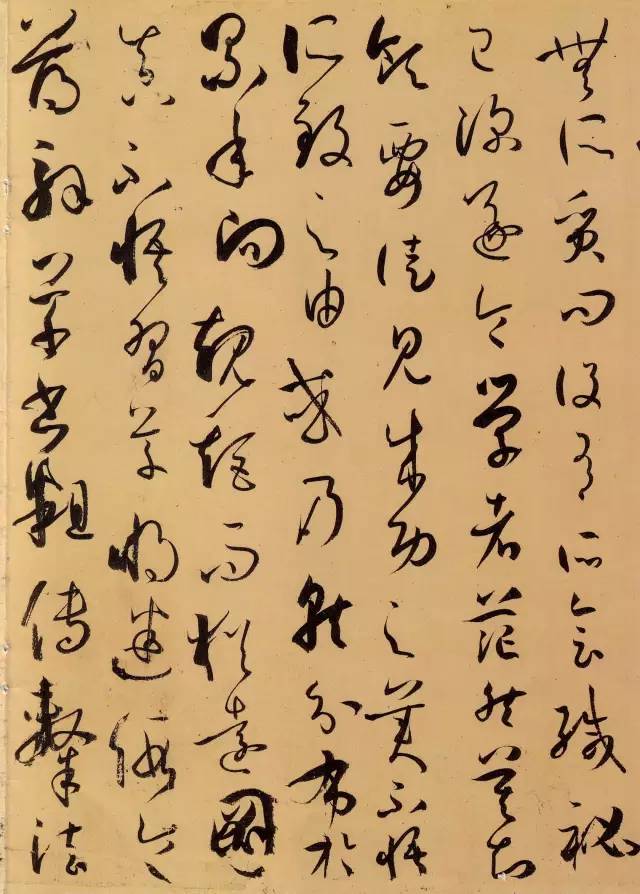 無所質問設有所會緘秘
已深遂令學者茫然莫知
領要徒見成功之美不悟
所致之由或乃就分布於
累年向規矩而猶遠圖
真不悟習草將迷假令
薄解草書粗傳隸法